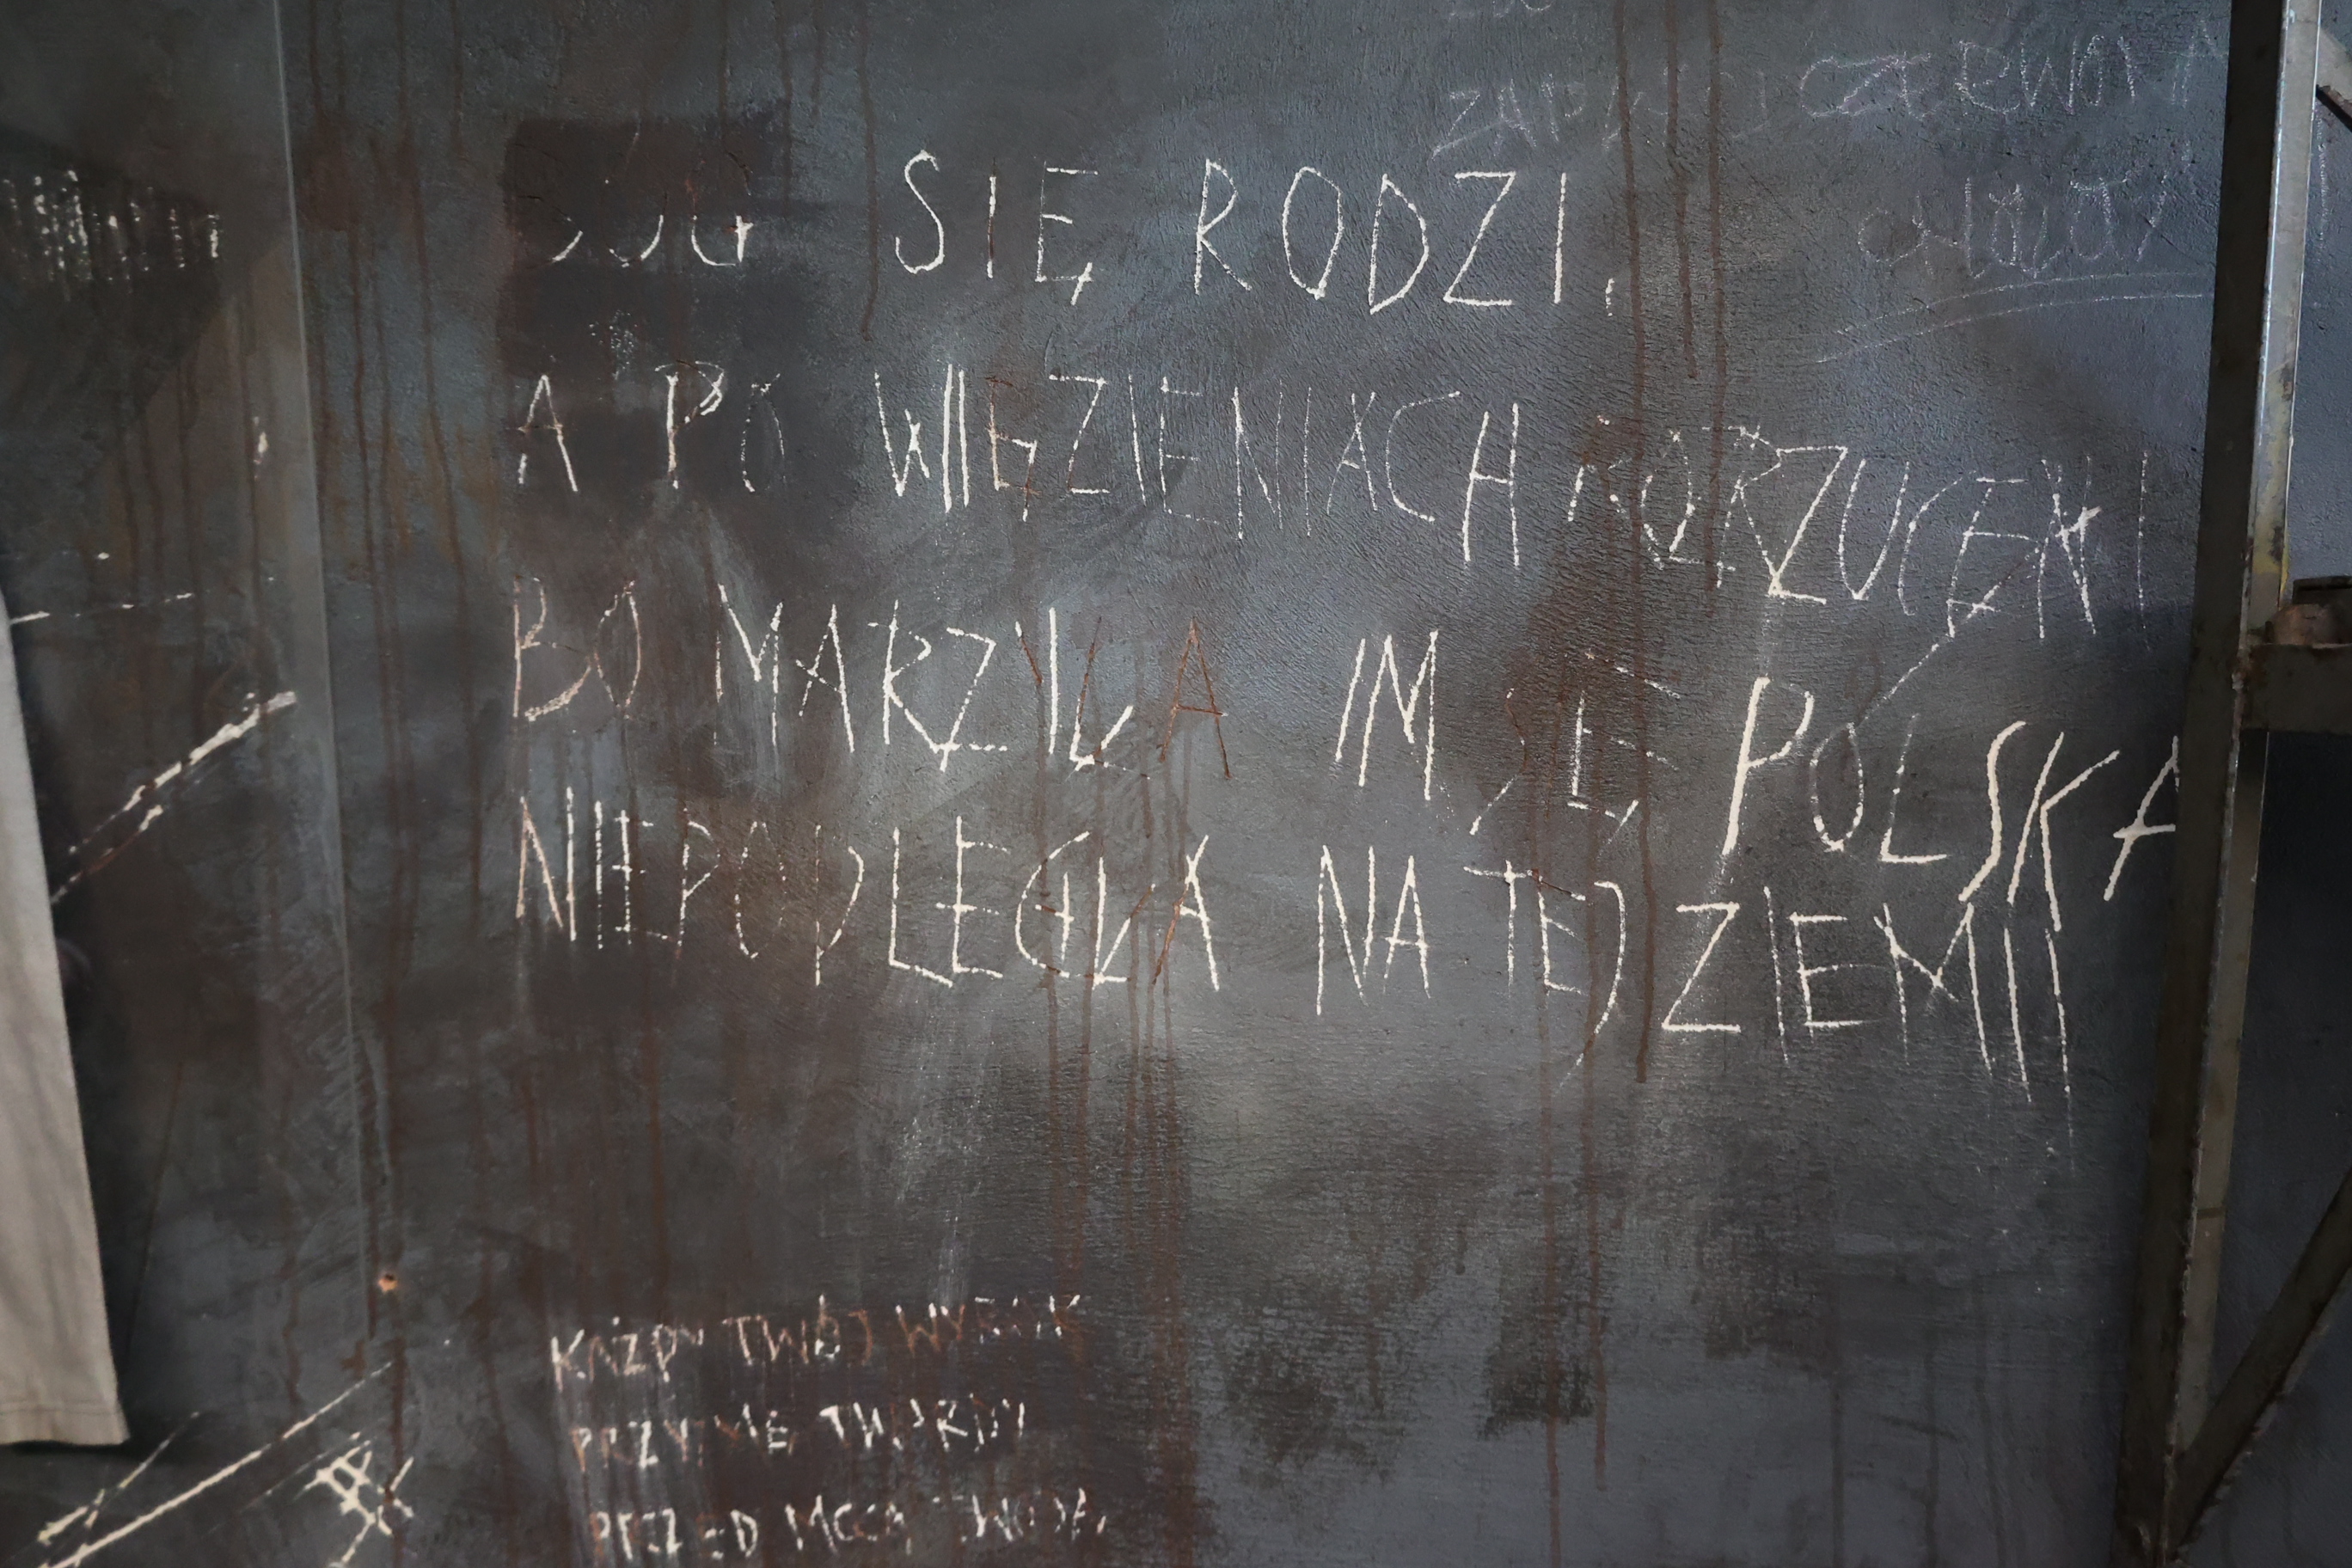 CZERWONA
BÓG SIĘ RODZI,
A PO WIĘZIENIACH PORZUCENI
BO MARZYŁA IM SIĘ POLSKA
NIEPODLEGŁA NA TEJ ZIEMII
KAŻDY TWÓJ WYROK
PRZYJMĘ TWARDY
PRZED MOCĄ TWOJĄ,